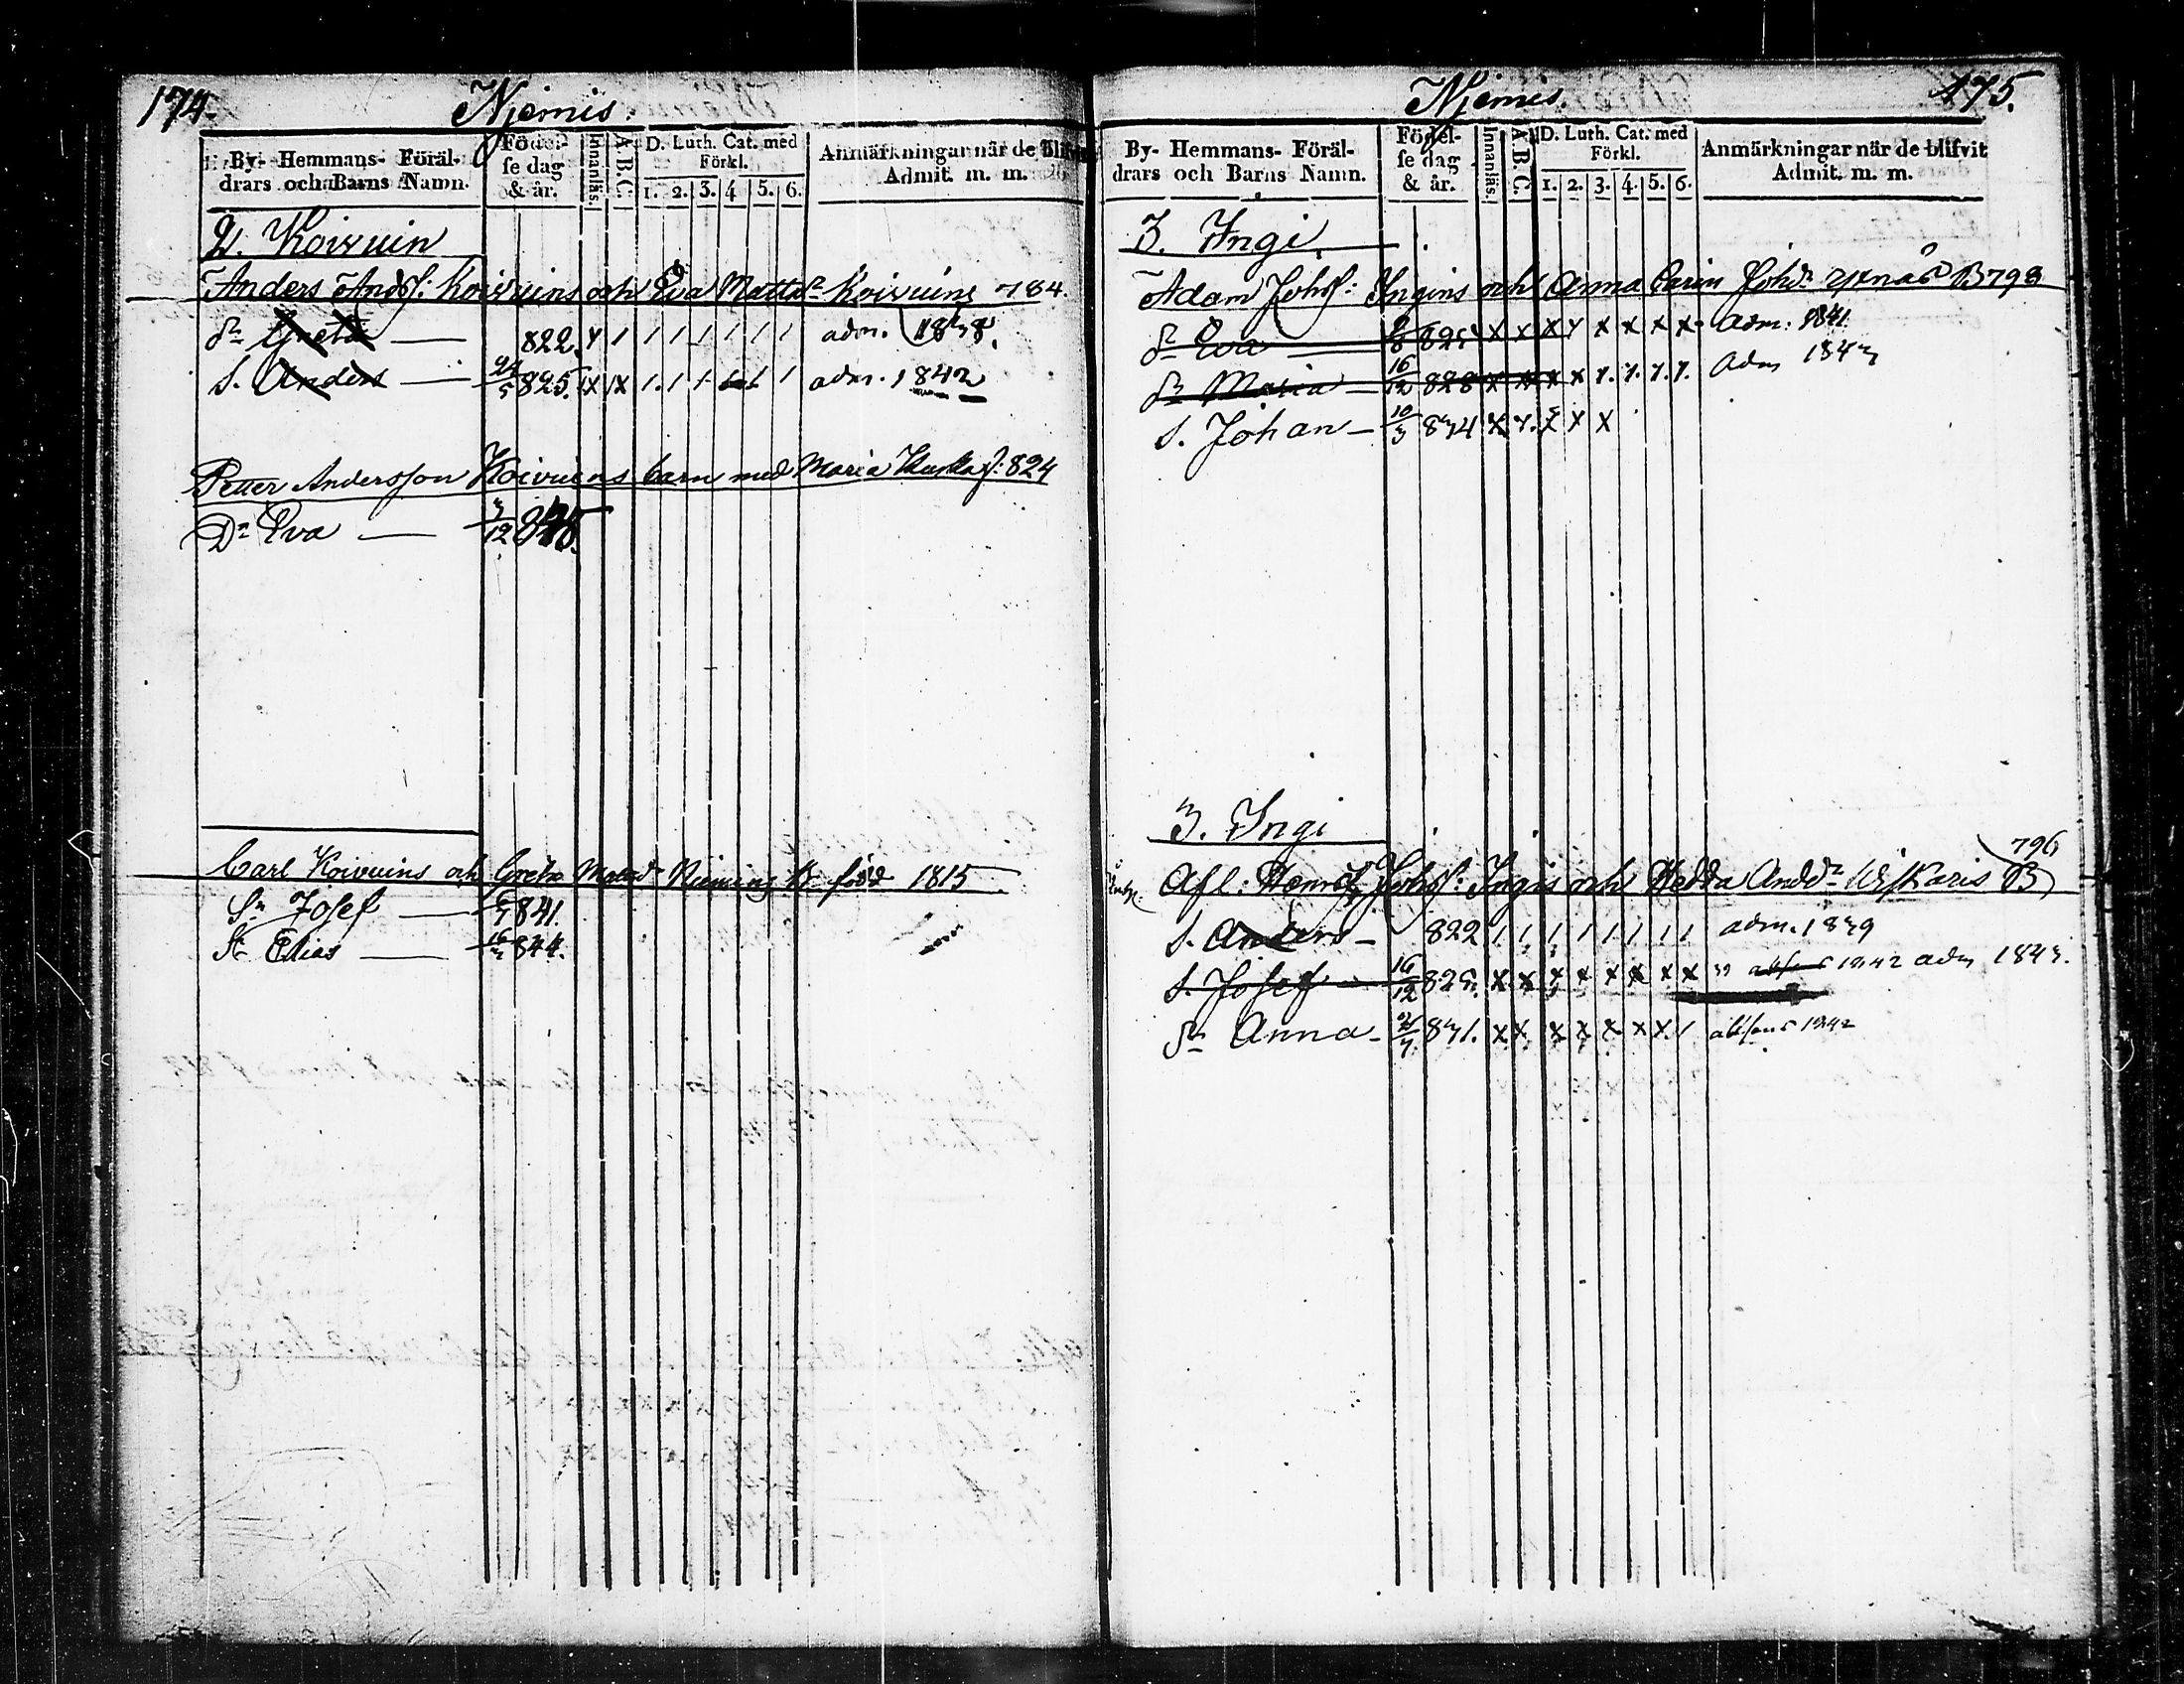 174.
Njemis.
By- Hemmans- Föräl-
drars och Barns Namn.
Födel-
se dag
& år.
Innanläs.
A.B.C.
D. Luth. Cat. med
Förkl.
1. 2. 3. 4 5. 6.
Anmärkningar när de blifvit
Admit. m. m.
2. Koivuin
Anders Andsf: Koivuins och Eva Mattsdr Koivuins 784.
dr Greta — 822. x 1 1 1 1 1 1 1 adm. 1838.
S. Anders — 825. x x 1. 1 1 1 1 1 adm. 1842
Petter Andersson Koivuins barn med Maria f: 824
Dr Eva — 3/12 845.
Carl Koivuins och Greta född 1815
Sn Josef — 841.
Sn Elias — 844.
175.
Njemis.
By- Hemmans- Föräl-
drars och Barns Namn.
Födel-
se dag
& år.
Innanläs.
A.B.C.
D. Luth. Cat. med
Förkl.
1. 2. 3. 4. 5. 6.
Anmärkningar när de blifvit
Admit. m. m.
3. Ingi
Adam Johsf: Ingins och Anna Carin Johdr B 798
dr Eva 825 x x x x x x x x adm: 1841
dr Maria — 16/12 828 x x x x x. x. x. x. adm 1843
S. Johan — 10/3 834 x x. x x x
3. Ingi
796
Afl: Henrik Johsf: Ingis och Hedda Anddr B
S. Anders — 822 1 1 1 1 1 1 1 1 adm. 1839
S. Josef — 16/12 825. x x x x x x x x 1842 adm 1843.
dr Anna — 831. x x x x x x x 1 absens 1842